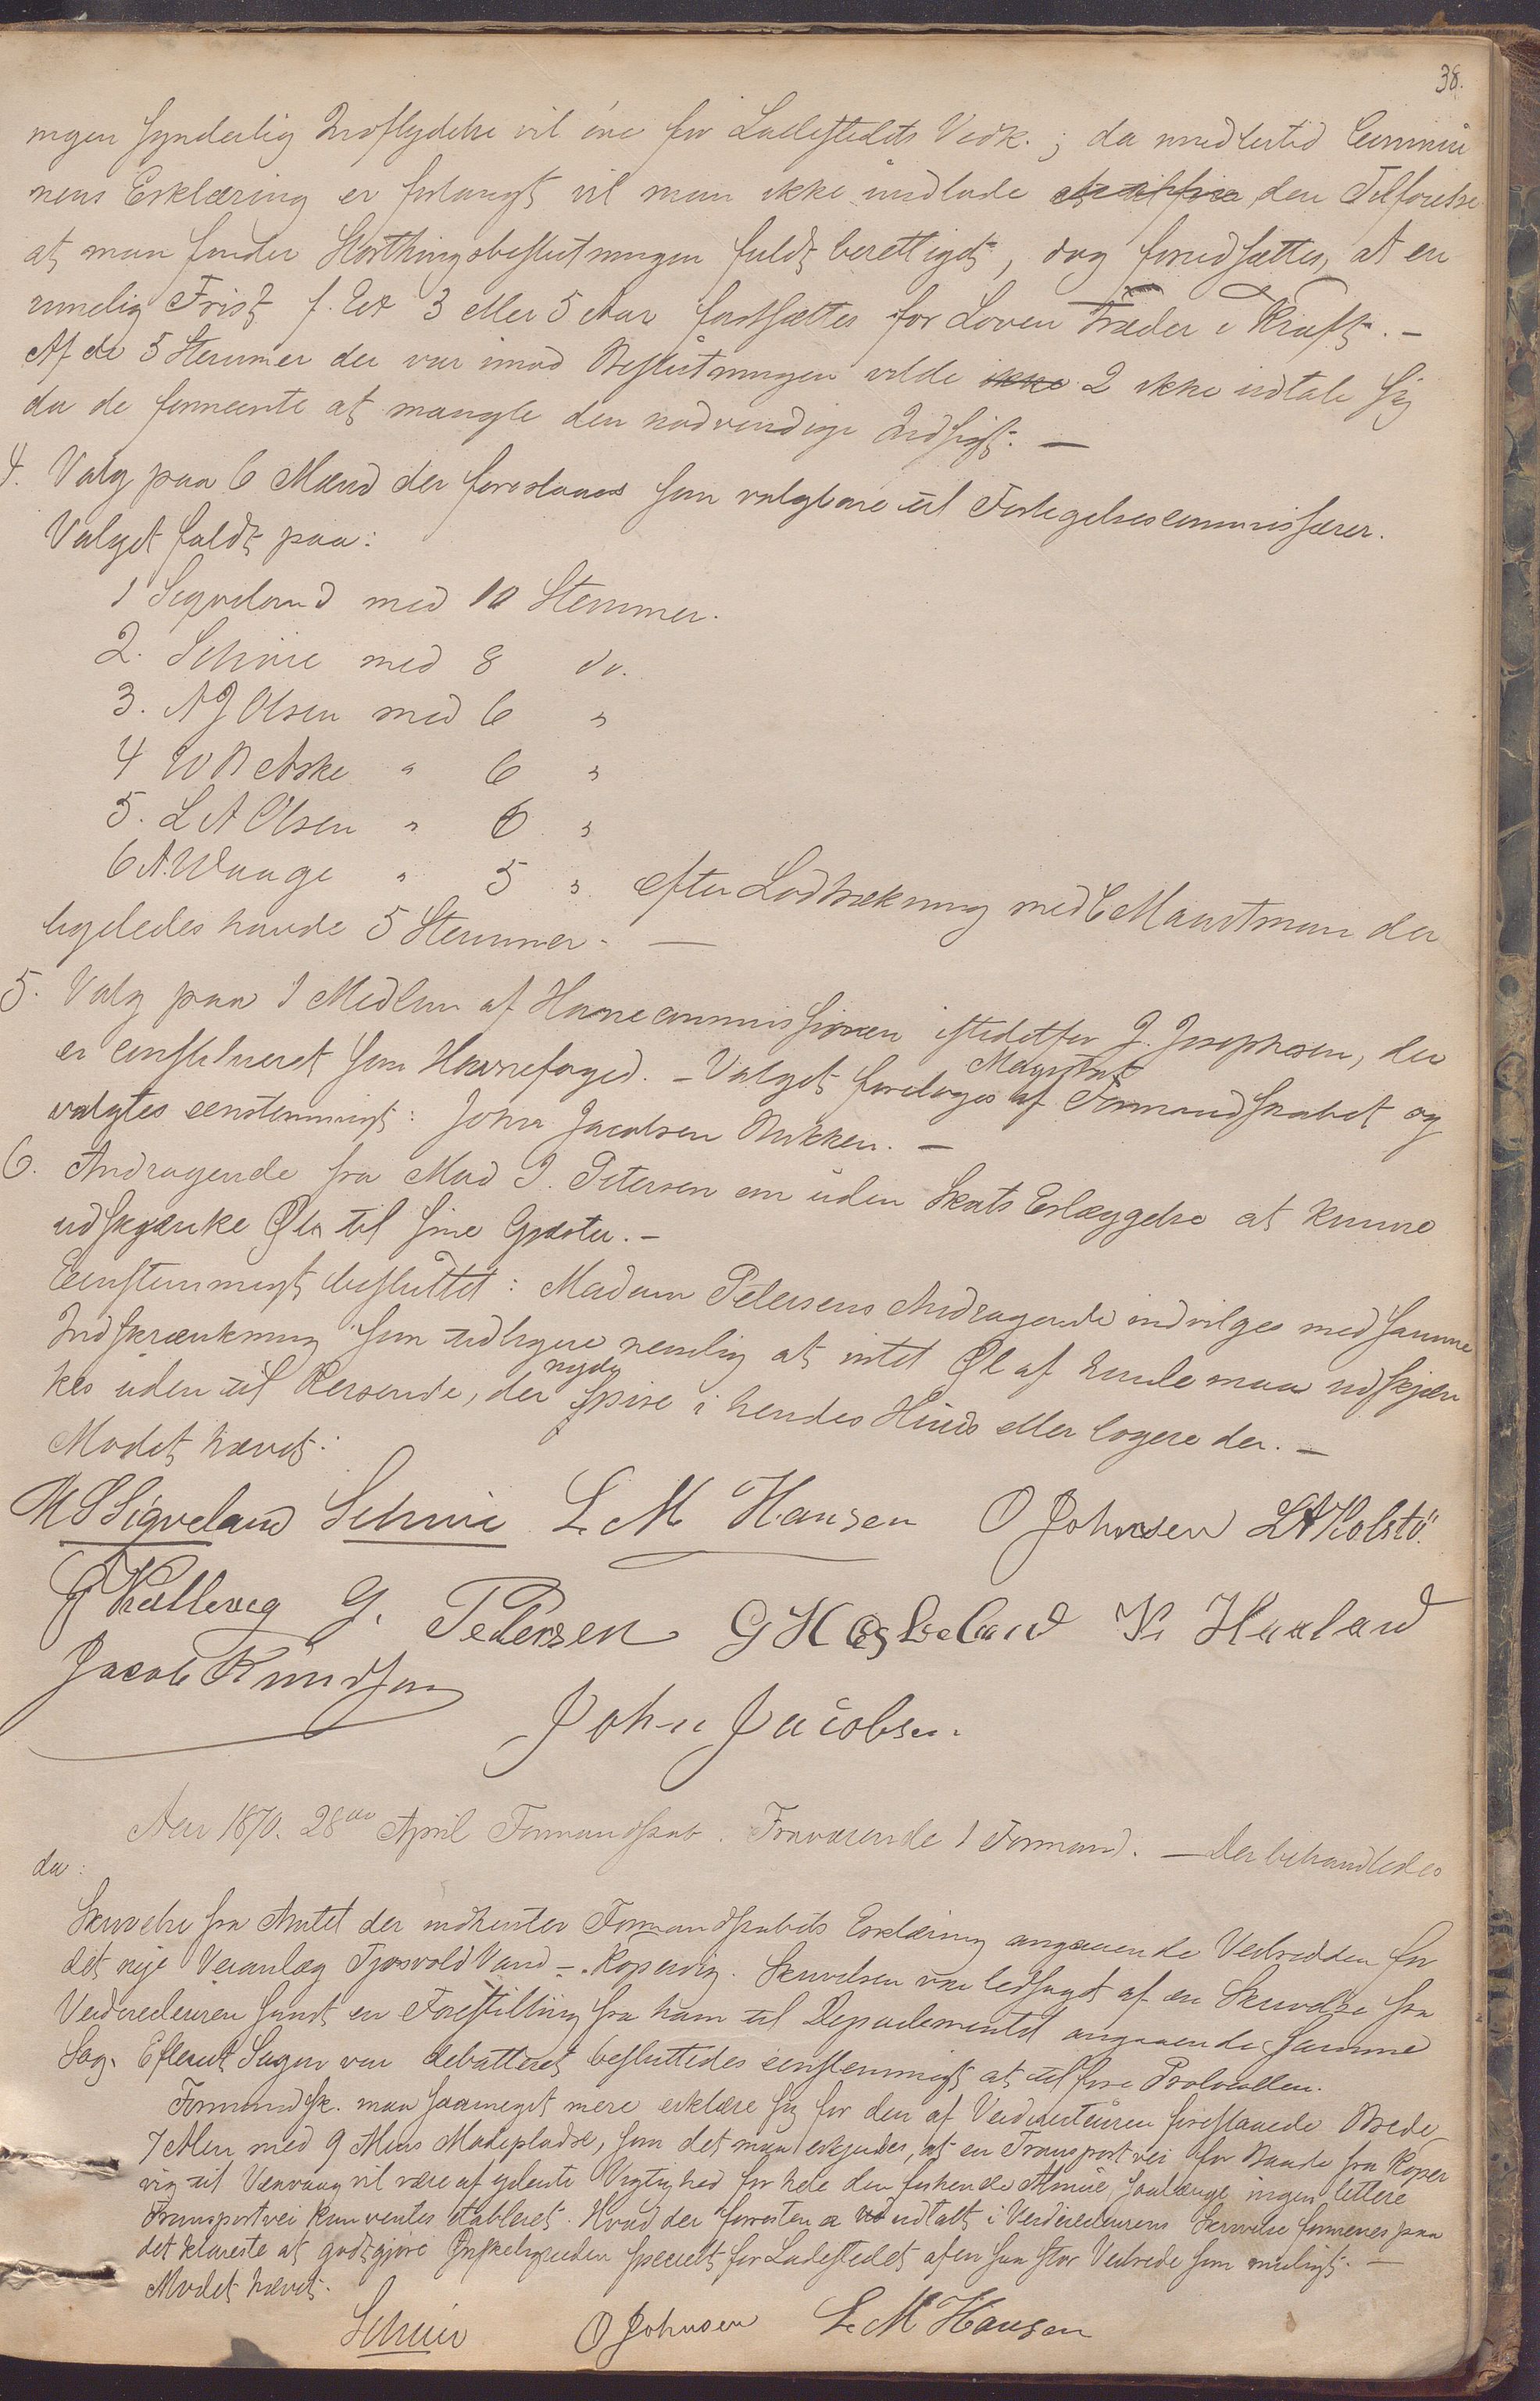 38.
ingen synderlig Indflydelse vil øve for Ladestedets Vedk.; da imidlertid Commu
nens Erklæring er forlangt vil man ikke undlade at tilføie den Tilførelse
at man finder Storthingsbeslutningen fuldt berettiget, dog forudsættes, at en
rimelig Frist f. Ex 3 eller 5 Aar fastsættes før Loven træder i Kraft. –
Af de 5 Stemmer der var imod Beslutningen vilde ikke 2 ikke udtale sig
da de formeente at mangle den nødvendige Indsigt. –
4. Valg paa 6 Mænd der foreslaaes som valgbare til Forligelsescommissærer.
Valget faldt paa:
1 Sigveland med 10 Stemmer.
2. Schiøie med 8 do.
3. A J Olsen med 6 "
4 W B Aske " 6 "
5. L A Olsen " 6 "
6 A. Waage " 5 " efter Lodtrækning med C Mandtman der
ligeledes havde 5 Stemmer. –
5. Valg paa 1 Medlem af Havnecommissionen istedetfor J. Josephsen, der
er constitueret som Havnefoged. – Valget foretoges af Magistrat Formandskabet og
valgtes eenstemmigt: John Jacobsen Nikken. –
6. Andragende fra Mad J. Petersen om uden Skats Erlæggelse at kunne
udskjænke Øl til sine Gjæster. –
Eenstemmigt besluttet: Madam Petersens Andragende indvilges med samme
Indskrænkning som tidligere nemlig at intet Øl af hende maa udskjæn
kes uden til Reisende, der nyde Spise i hendes Huus eller logere der. –
Mødet hævet:
M S Sigveland Schiøie L. M Hansen O Johnsen L A Kolstö.
Kallevig G. Pedersen G H Eskeland K Haaland
Jacob Knudsen
John Jacobsen.
Aar 1870. 28de April Formandskab. Fraværende 1 Formand. – Der behandledes
da:
Skrivelse fra Amtet der indhenter Formandskabets Erklæring angaaende Veibredden for
det nye Veianlæg Tjøsvold Vand – Kopervig. Skrivelsen var ledsaget af en Skrivelse fra
Veidirecteuren samt en Forestilling fra ham til Departementet angaaende samme
Sag. Efterat Sagen var debatteret besluttedes eenstemmigt at tilføre Protocollen.
Formandsk. maa saameget mere erklære sig for den af Veidirecteuren foreslaaede Brede
7 Alen med 9 Alens Mødepladse, som det maa erkjendes, at en Transportvei for Baade fra Koper
vig til Veavaag vil være af yderste Vigtighed for hele den fiskende Almue, saalænge ingen lettere
Transportvei kan ventes etableret. Hvad der forresten er udtalt i Veidirecteurens Skrivelse formenes paa
det klareste at godtgjøre Ønskeligheden specielt for Ladestedet af en saa stor Veibrede som muligt. –
Mødet hævet.
Schiøie O Johnsen L. M Hansen